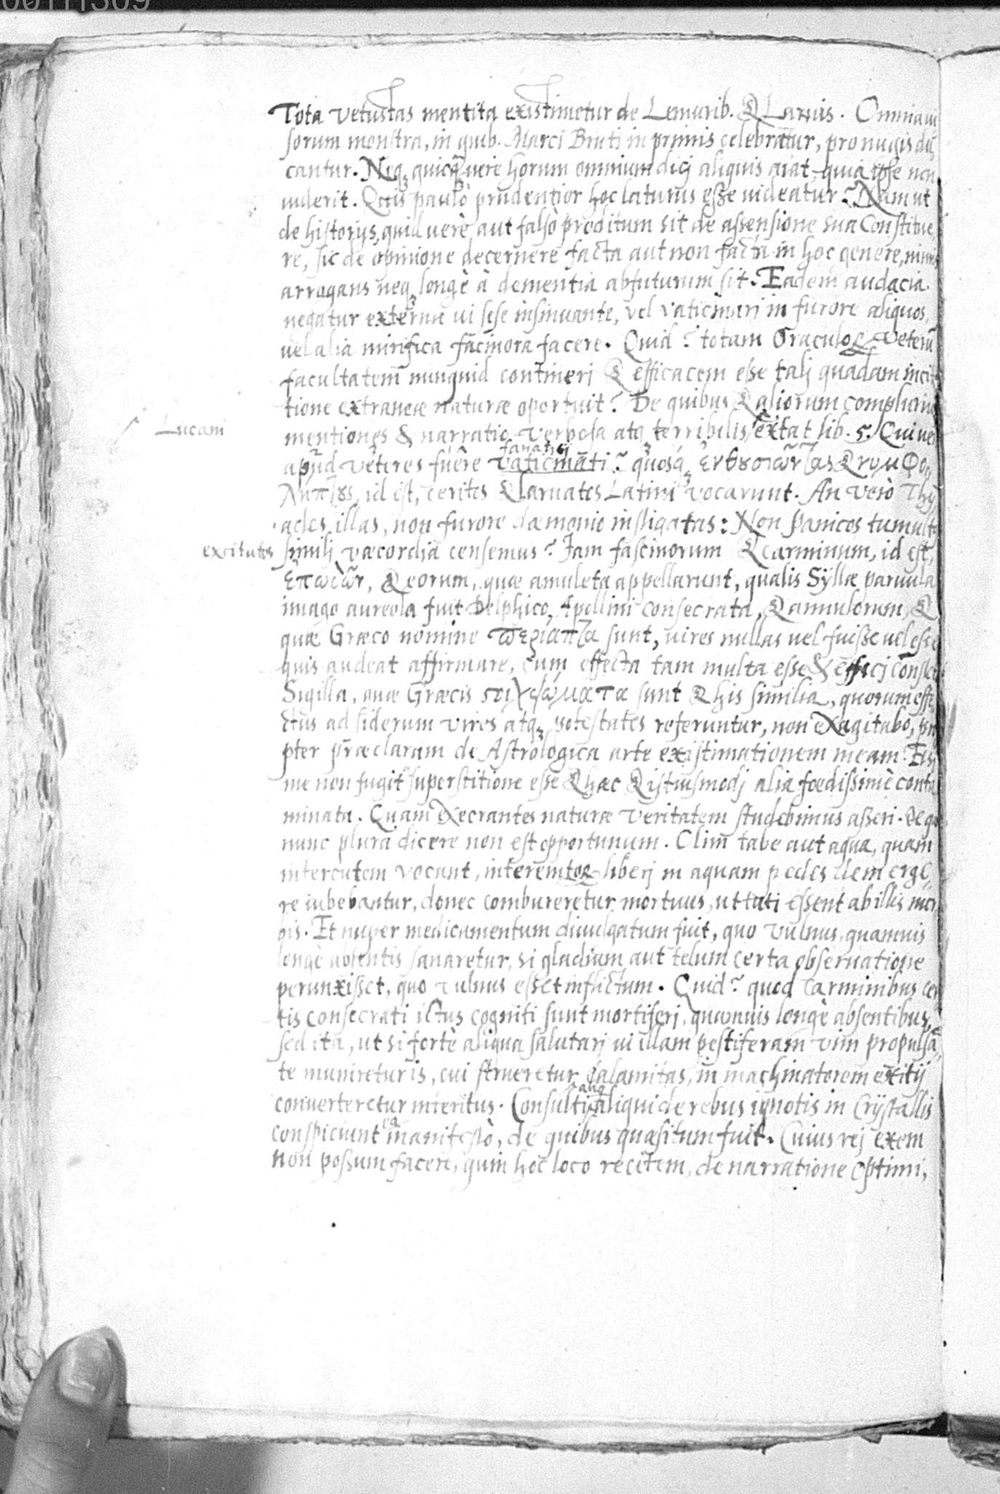 00111309
Tota vetustas mentita existimetur de Lemurib. & Larvis. Omnia vi
sorum monstra, in quib. Marci Bruti in primis celebratur, pro nugis du
cantur. Neq; quicq̃ vere horum omnium dici aliquis aiat, quia ipse non
viderit. Quis paulò prudentior hoc laturus esse videatur? Nam ut
de historijs, quid verè, aut falsò proditum sit de assensione sua constitue
re, sic de opinione decernere facta aut non facta in hoc genere, nimis
arrogans neq; longè à dementia abfuturum sit. Eadem audacia
negatur externa vi sese insinuante, vel vaticinari in furore aliquos,
vel alia mirifica facinora facere. Quid? totam Oraculor̃ veterũ
facultatem nunquid contineri & efficacem esse tali quadam incita
tione extraneæ naturæ oportuit? De quibus & aliorum complurium
Lucani
mentiones & narratio verbosa atq; terribilis extat lib. 5. Qui ve
fanatici
apud veteres fuêre vaticinãti? quosq;
id est, cerites & larvates Latini vocarunt. An verò Thy
ades illas, non furore dæmonio instigatas: Non Panicos tumult
excitatos simili væcordia censemus? Iam fascinorum & carminum, id est,
ἐπωδῶν, & eorum, quæ amuleta appellarunt, qualis Syllæ parvula
imago aureola fuit Delphico Apollini consecrata, & annulorum, &
quæ Græco nomine περίαπτα sunt, vires nullas vel fuisse vel esse
quis audeat affirmare, cum effecta tam multa esse & effici constet
Sigilla, quæ Græcis sunt & his similia, quorum effe
ctus ad siderum vires atq; potestates referuntur, non exagitabo, pro
pter præclaram de Astrologica arte existimationem meam. Etsi
me non fugit superstitione esse & hæc & istiusmodi alia fœdissimè conta
minata. Quam execrantes naturæ veritatem studebimus asseri. de qua
nunc plura dicere non est opportunum. Olim tabe aut aqua, quam
intercutem vocant, interemtor̃ liberi in aquam pedes demerge
re iubebantur, donec combureretur mortuus, ut tuti essent ab illis mor
bis. Et nuper medicamentum divulgatum fuit, quo vulnus, quamvis
longè absentis sanaretur, si gladium aut telum certa observatione
perunxisset, quo vulnus esset inflictum. Quid? quod carminibus cer
tis consecrati ictus cogniti sunt mortiferi, quamvis longè absentibus,
sed ita, ut si fortè aliqua salutari vi illam pestiferam vim propulsã
te muniretur is, cui strueretur calamitas, in machinatorem exitij
converteretur interitus. Consulti aliqui de rebus ignotis in Crystallis
conspiciunt ea manifestò, de quibus quæsitum fuit. Cuius rei exem
non possum facere, quin hoc loco recitem, de narratione optimi,